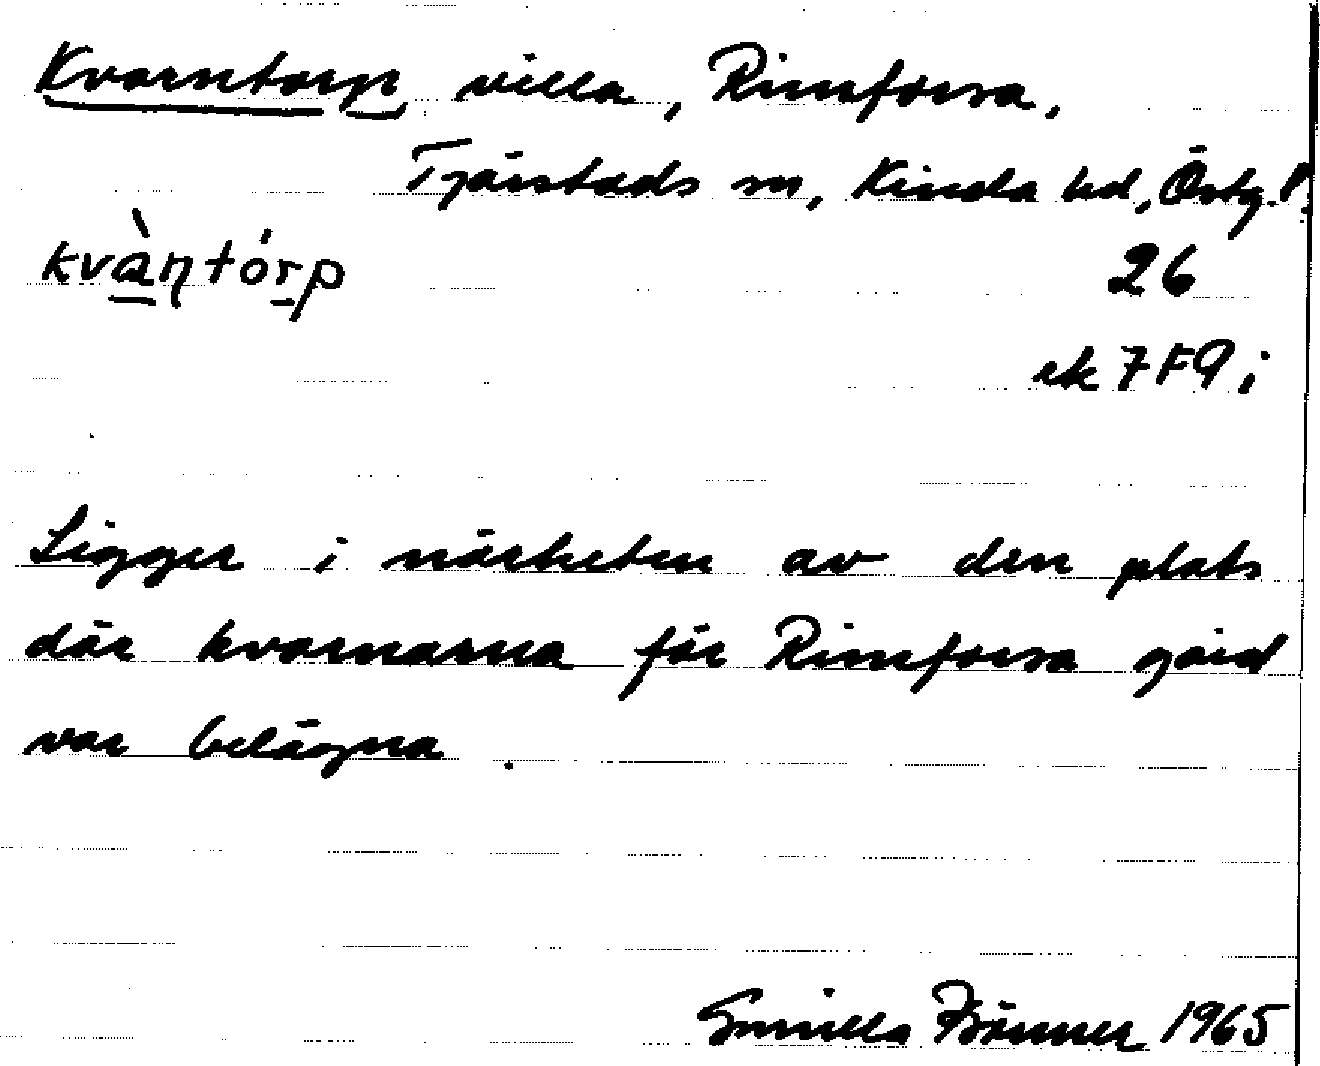 Kvarntorp villa, Rimforsa,
Tjärstads sn, Kinda hd, Östg. l.
kvàṇtórp
26
ek 7F9i
Ligger i närheten av den plats
där kvarnarna för Rimforsa gård
var belägna.
Gunilla Brünner 1965